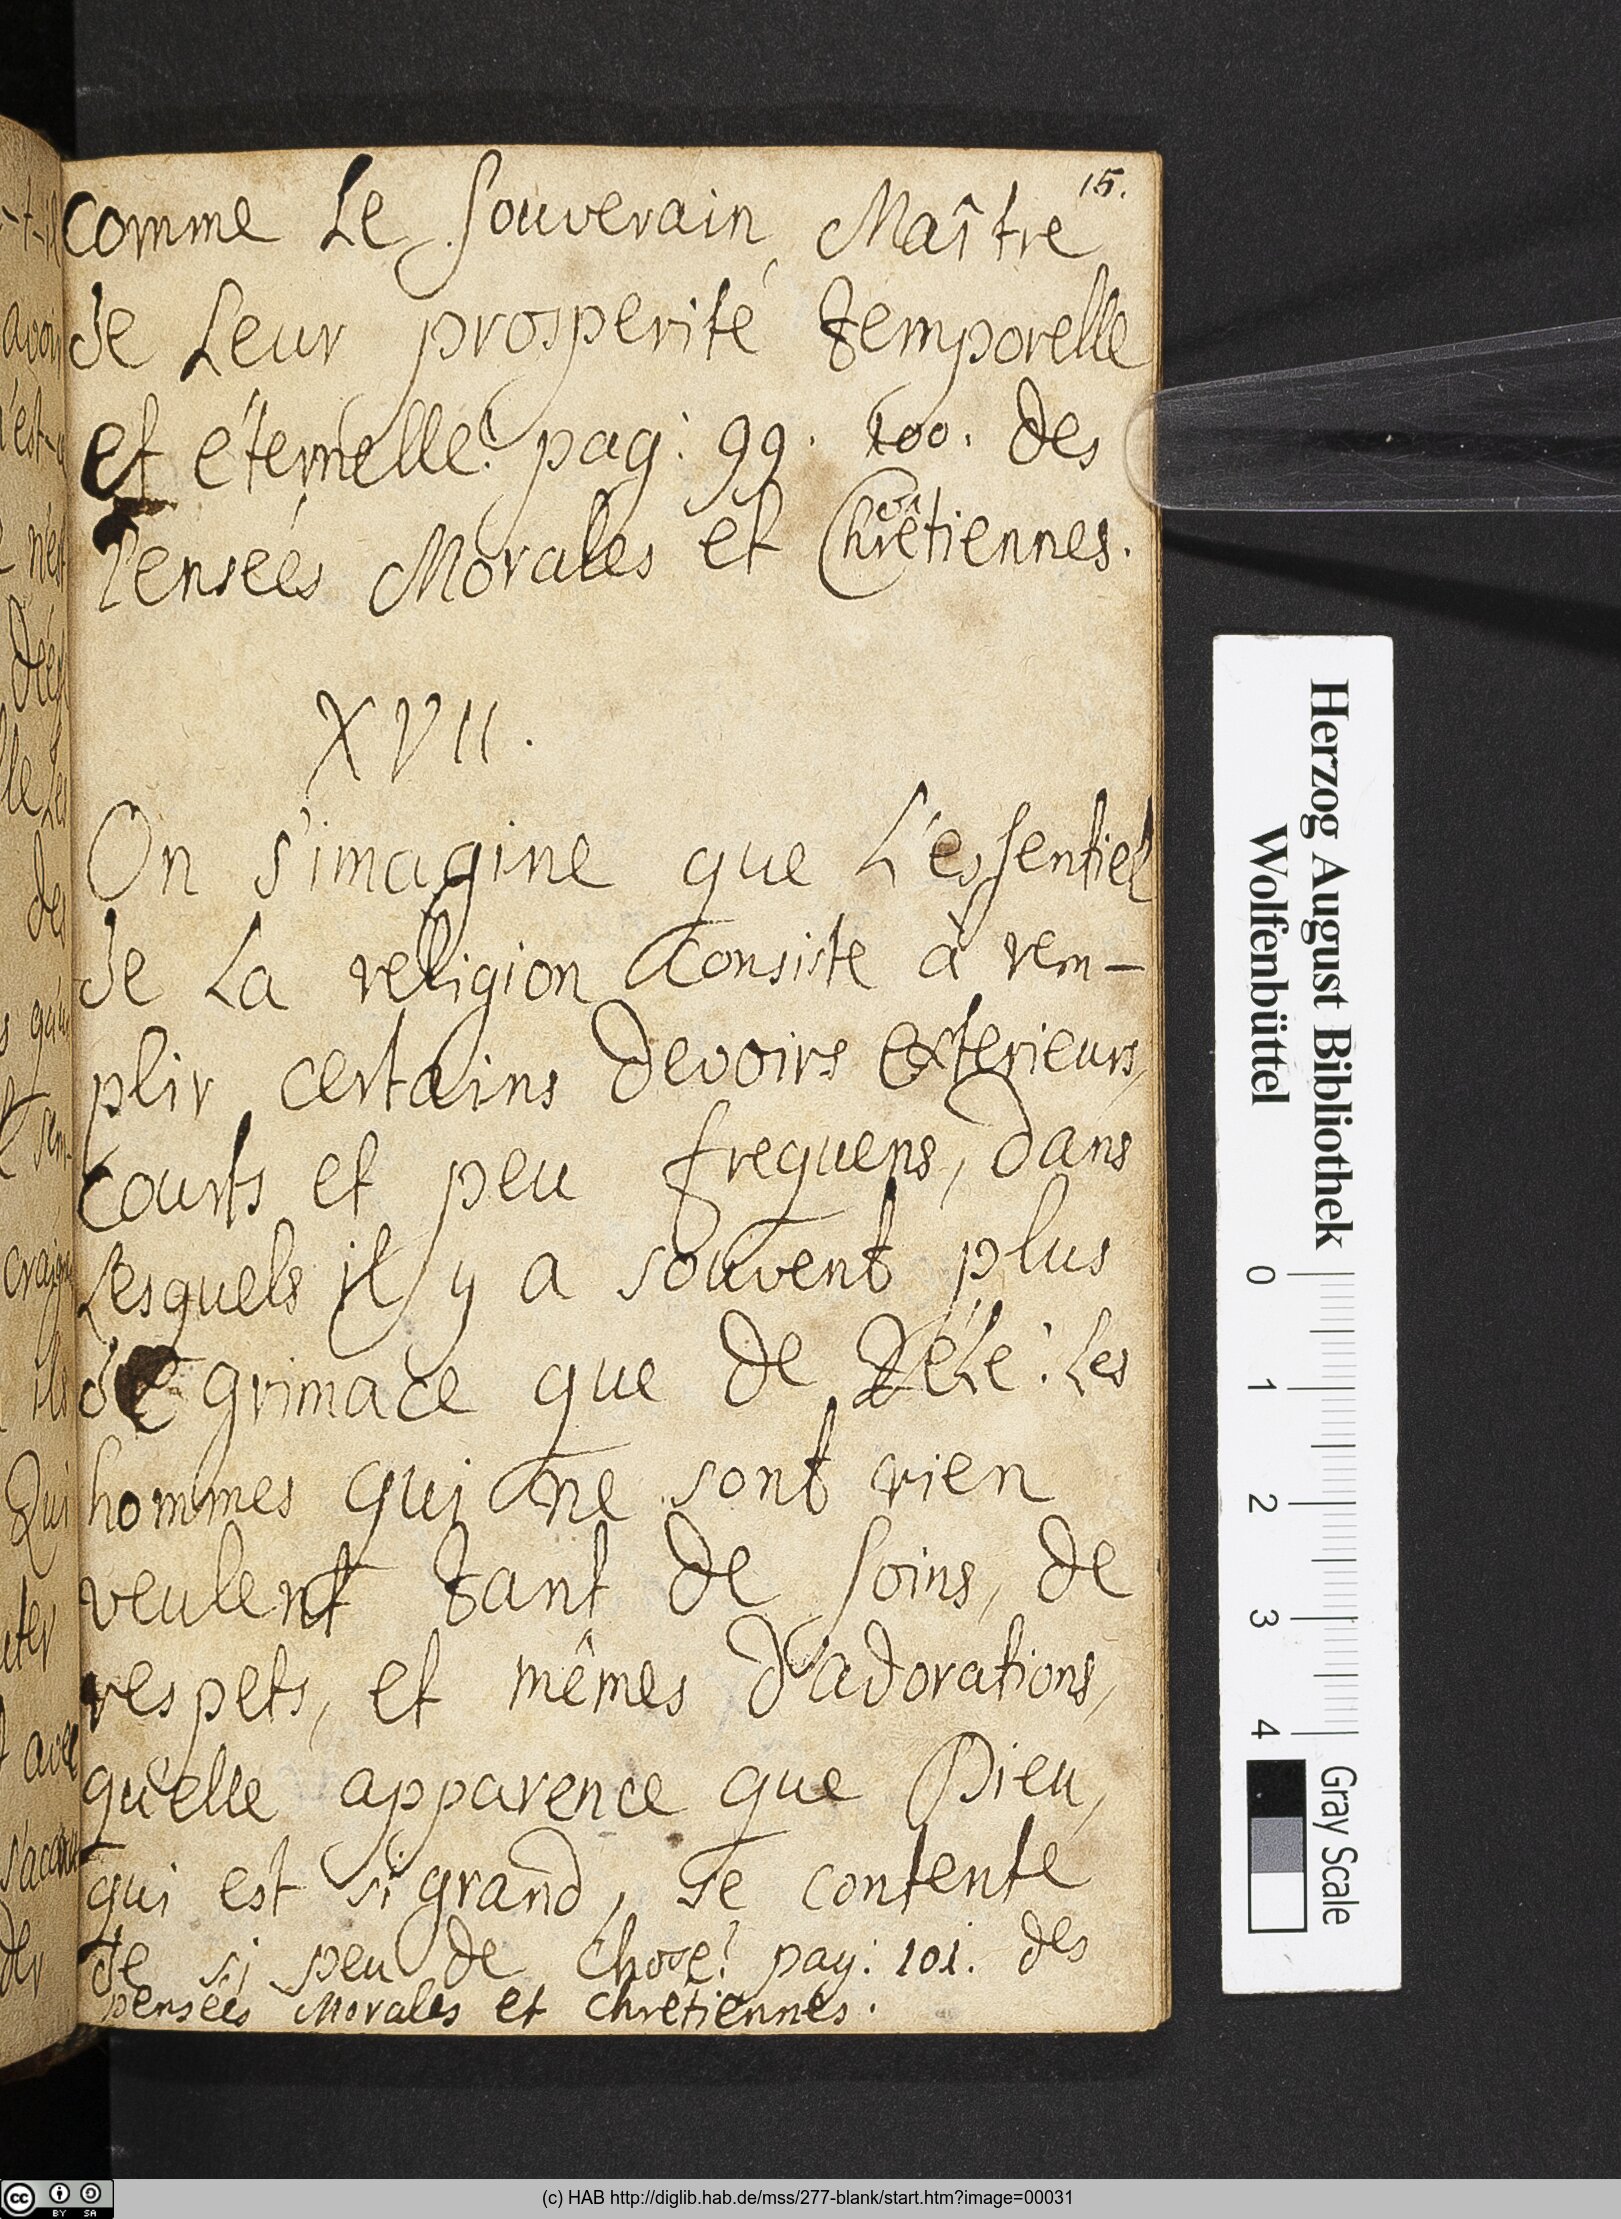 15.
comme Le souverain Maître
de Leur prosperité temporelle
et éternelle? pag: 99. 100. des
Pensées Morales et Chrêtiennes.
XVII.
On s'imagine que L'essentiel
de La religion consiste à rem-
plir certains devoirs exterieurs,
courts et peu frequens, dans
Lesquels il y a souvent plus
de grimace que de zéLe: Les
hommes qui ne sont rien
veulent tant de soins, de
respets, et mêmes d'adorations,
qu'elle apparence que Dieu,
qui est si grand, se contente
de si peu de chose? pag: 101. des
pensées Morales et chrêtiennes.
Herzog August Bibliothek
Wolfenbüttel
0 1 2 3 4
Gray Scale
(c) HAB http://diglib.hab.de/mss/277-blank/start.htm?image=00031
cc BY SA